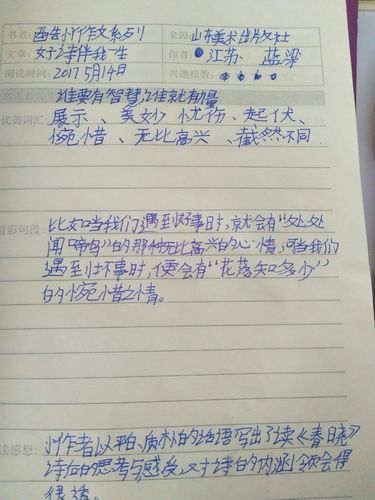 书名: 西告小作文系列 来源: 山东美术出版社
文章: 好诗伴我一生 作者: 江苏、蓝梁
阅读时间: 2017 5月14日 兴趣指数:
谁要有智慧,谁就有力量
优美词汇: 展示、美妙 忧伤、起伏、
惋惜、无比高兴、截然不同
精彩句段: 比如当我们遇到好事时,就会有“处处
闻啼鸟”的那种无比高兴的心情,可当我们
遇到坏事时,便会有“花落知多少”
的惋惜之情。
读感想: 小作者以平、质朴的话语写出了读《春晓》
诗后的思考与感受,对诗的内涵领会得
很透。